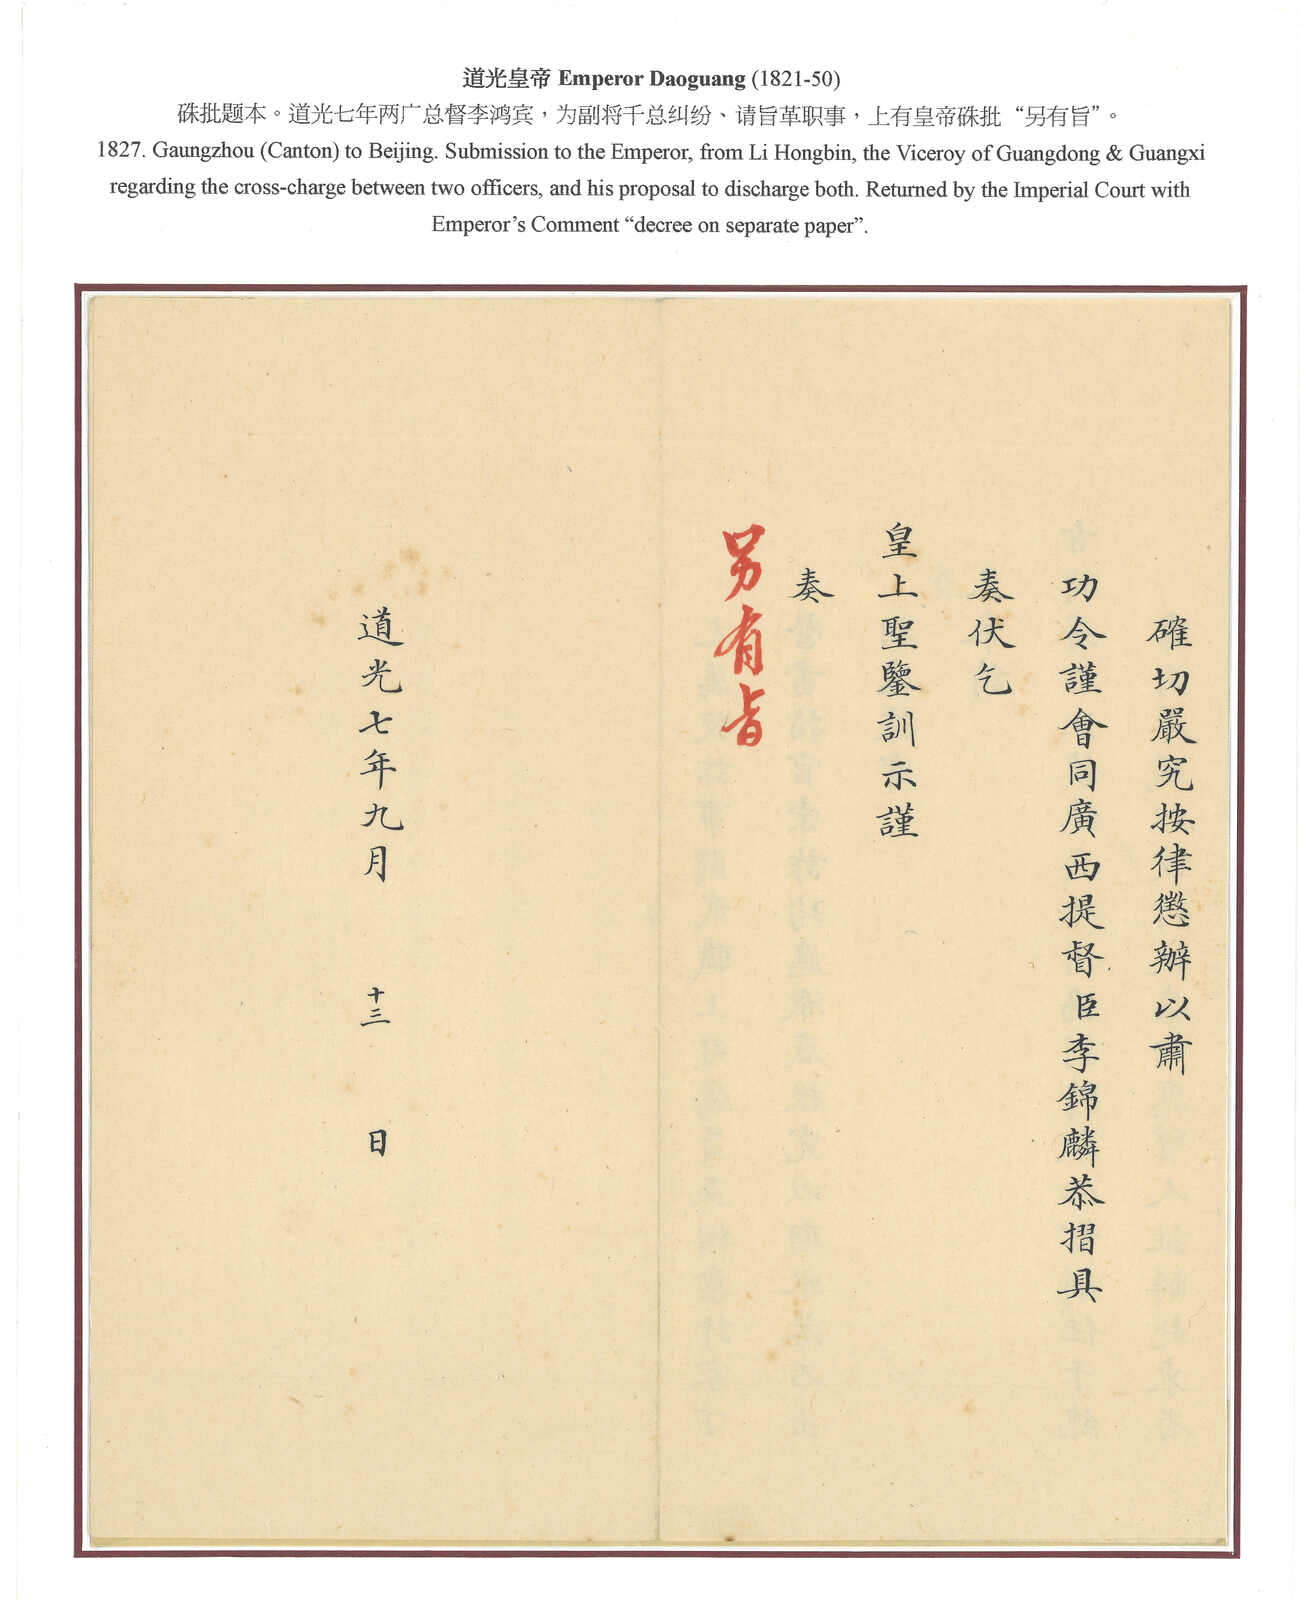 道光皇帝 Emperor Daoguang (1821-50)
硃批题本。道光七年两广总督李鸿宾，为副将千总纠纷、请旨革职事，上有皇帝硃批“另有旨”。
1827. Gaungzhou (Canton) to Beijing. Submission to the Emperor, from Li Hongbin, the Viceroy of Guangdong & Guangxi
regarding the cross-charge between two officers, and his proposal to discharge both. Returned by the Imperial Court with
Emperor's Comment “decree on separate paper”.
確切嚴究按律懲辦以肅
功令謹會同廣西提督臣李錦麟恭摺具
奏伏乞
皇上聖鑒訓示謹
奏
另有旨
道光七年九月十三日